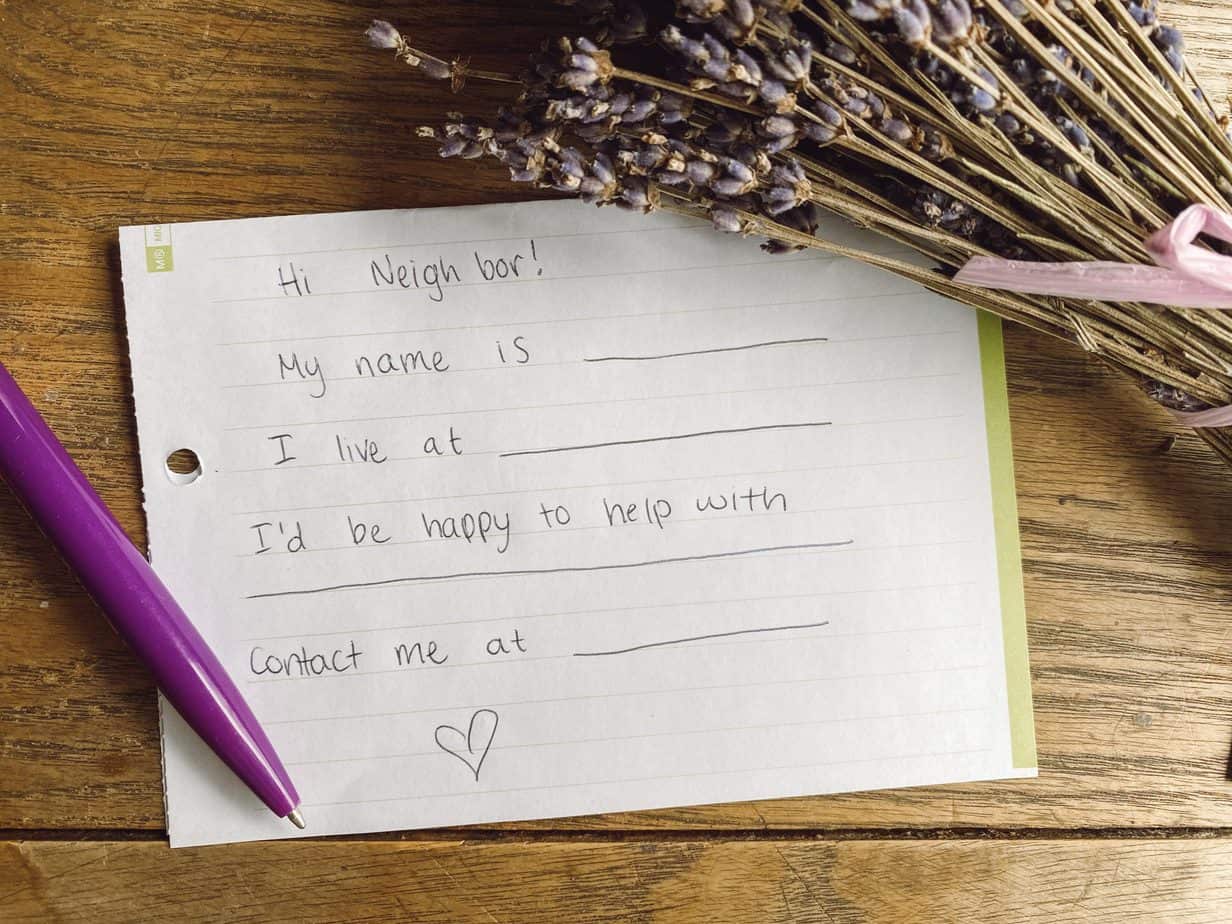 Hi Neighbor!
My name is __________
I live at __________
I'd be happy to help with
__________
Contact me at __________